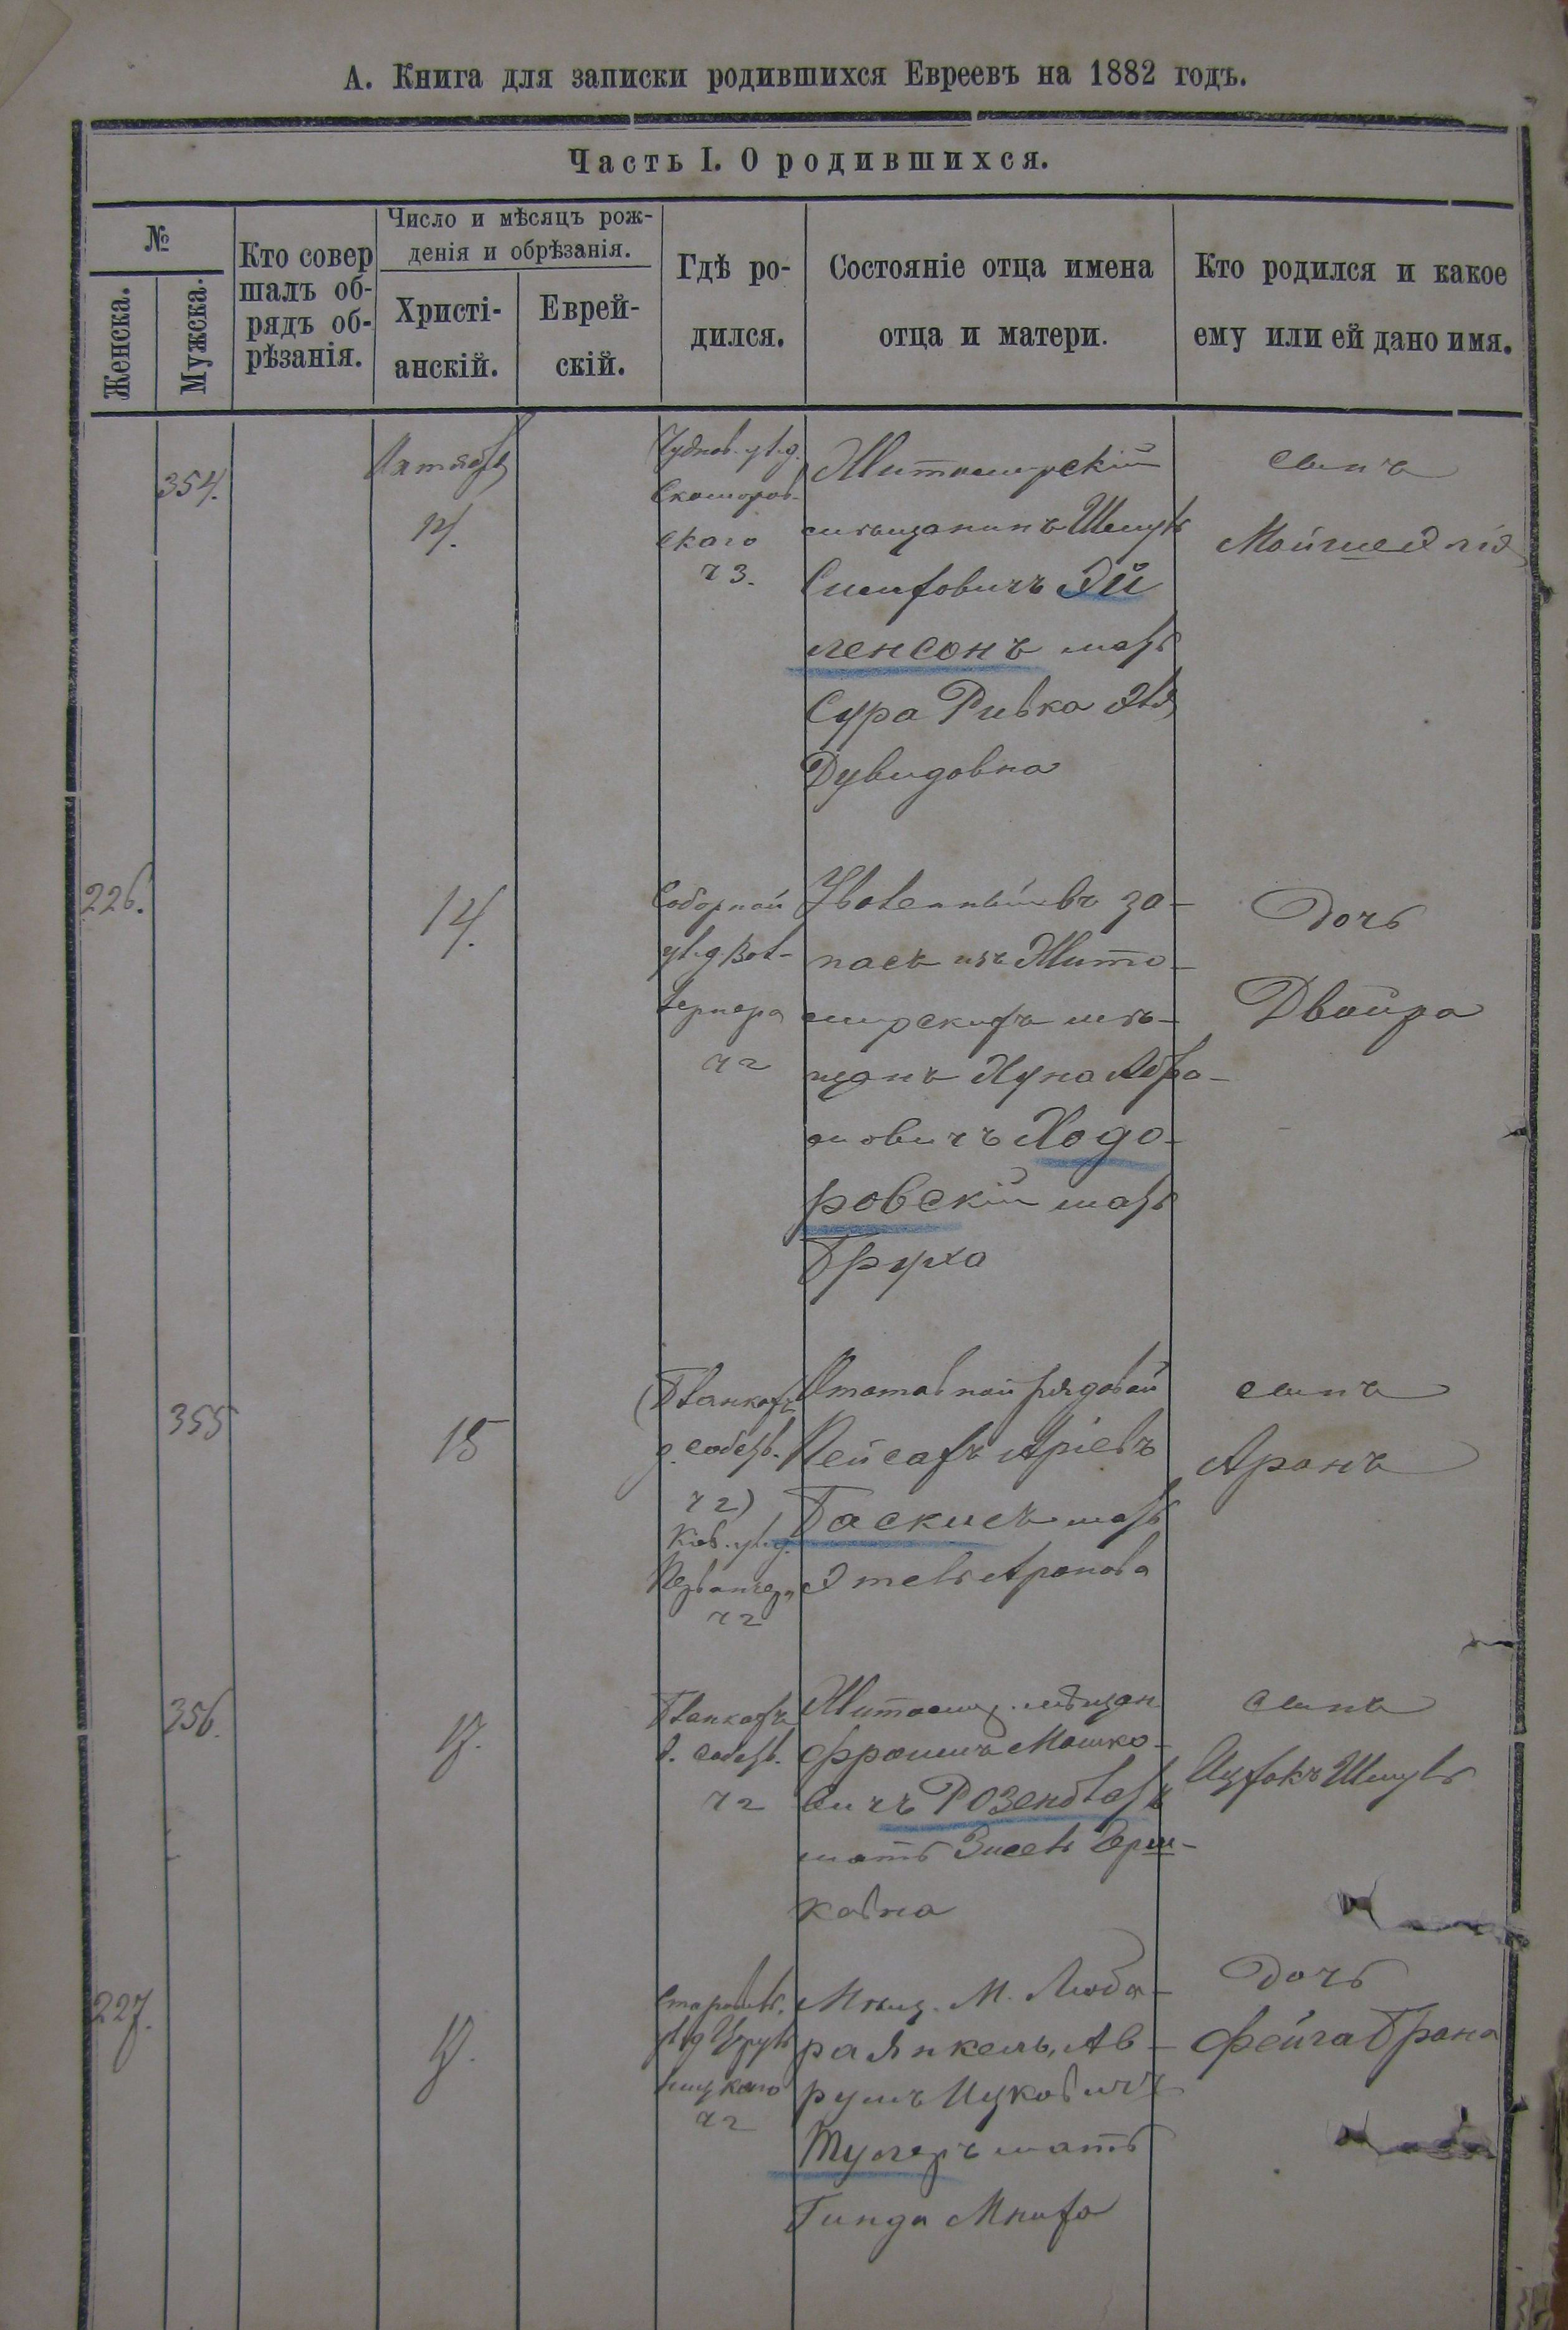 А. Книга для записки родившихся Евреевъ на 1882 годъ.
Часть I. О родившихся.
№
Женска.
Мужска.
Кто совер
шалъ об-
рядъ об-
рѣзанія.
Число и мѣсяцъ рож-
денія и обрѣзанія.
Христі-
анскій.
Еврей-
скій.
Гдѣ ро-
дился.
Состояніе отца имена
отца и матери.
Кто родился и какое
ему или ей дано имя.
354.
Октября
14.
Чуднов. ул. д.
Скоморов-
скаго
ч 3.
Житомирскій
мѣщанинъ Шмуль
Эй
ленсонъ мать
Сура Ривка
Дувидовна
сынъ
Мойше Элія
226.
14.
Соборной
ул. д. Воль-
вернера
ч 2
Уволенный въ за-
пасъ изъ Жито-
мирскихъ мѣ-
щанъ Хуна Абра-
мовичъ Ходо-
ровскій мать
Бруха
Дочь
Двойра
355
15
(Бланкохъ
д. собств.
ч 2)
Киев. ул. д.
ч 2
рядовой
Пейсахъ Аріевъ
Баскисъ мать
Этель Аронова
сынъ
Аронъ
356.
17.
Бланкохъ
д. собств.
ч 2
Житомир. мѣщан
Фроимъ Мошко-
вичъ Розенблатъ
мать Зисель Герш-
ковна
сынъ
Ицхокъ Шмуль
227.
17.
ч 2
Мѣщ. М. Люба-
ра Янкель, Ав-
румъ Ицковичъ
Тулеръ мать
Гинда Мниха
Дочь
Фейга Брана